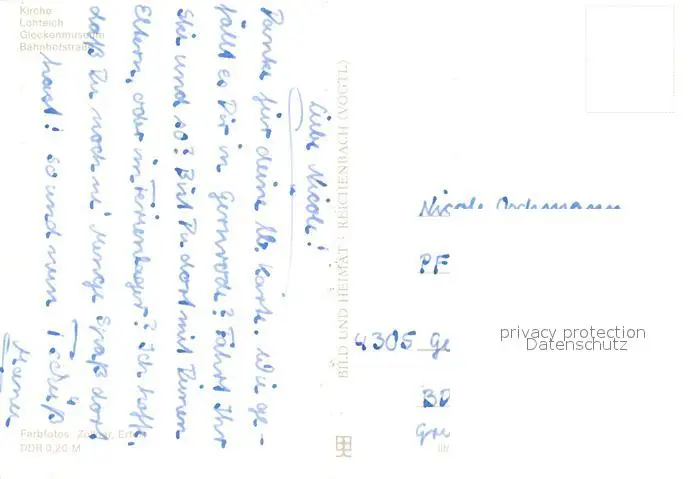 Kirche
Lohteich
Glockenmuseum
Bahnhofstraße
Liebe Nicole!
Danke für deine lb. Karte. Wie ge-
fällt es Dir in Gernrode? Fahrt Ihr
Ski und so? Bist Du dort mit Deinen
Eltern, oder im Ferienlager? Ich hoffe,
daß Du noch ne Menge Spaß dort
hast! So und nun Tschüß
Farbfotos: Zeller, Erfurt
DDR 0,20 M
BILD UND HEIMAT · REICHENBACH (VOGTL)
Nicole
PF
4305 Ge
privacy protection
Datenschutz